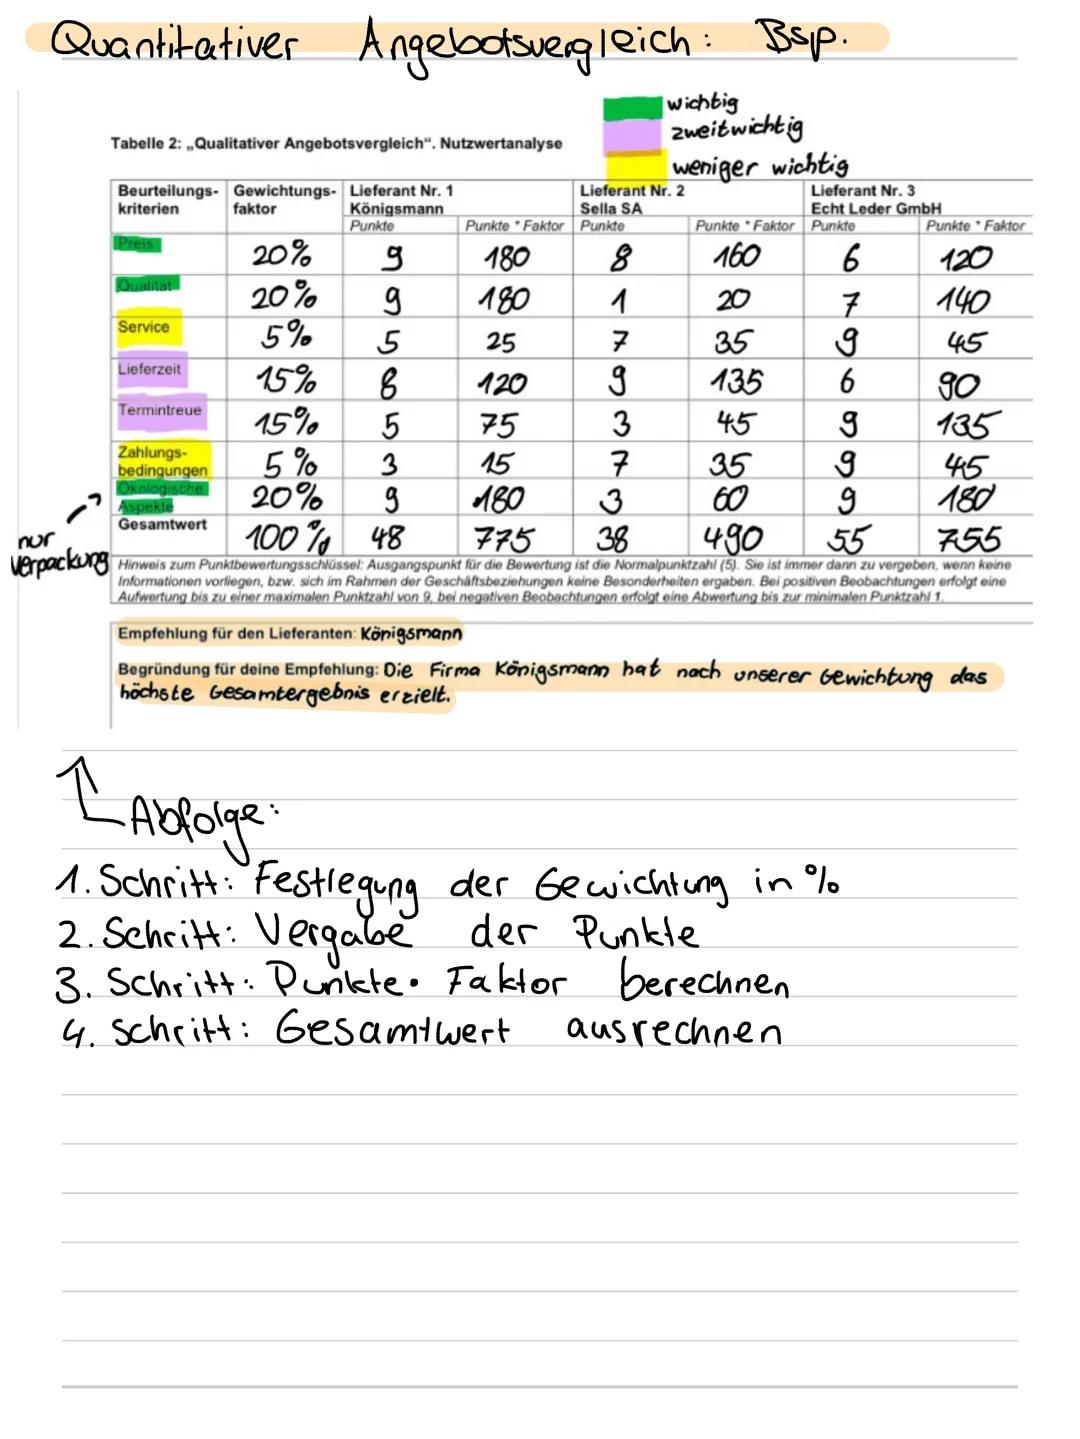 Quantitativer Angebotsvergleich: Bsp.
wichtig
zweitwichtig
weniger wichtig
Tabelle 2: „Qualitativer Angebotsvergleich“. Nutzwertanalyse
Beurteilungs- Gewichtungs- Lieferant Nr. 1 Lieferant Nr. 2 Lieferant Nr. 3
kriterien faktor Königsmann Sella SA Echt Leder GmbH
Punkte Punkte * Faktor Punkte Punkte * Faktor Punkte Punkte * Faktor
Preis 20% 9 180 8 160 6 120
Qualität 20% 9 180 1 20 7 140
Service 5% 5 25 7 35 9 45
Lieferzeit 15% 8 120 9 135 6 90
Termintreue 15% 5 75 3 45 9 135
Zahlungs-
bedingungen 5% 3 15 7 35 9 45
Ökologische
Aspekte 20% 9 180 3 60 9 180
Gesamtwert 100% 48 775 38 490 55 755
nur
Verpackung
Hinweis zum Punktbewertungsschlüssel: Ausgangspunkt für die Bewertung ist die Normalpunktzahl (5). Sie ist immer dann zu vergeben, wenn keine
Informationen vorliegen, bzw. sich im Rahmen der Geschäftsbeziehungen keine Besonderheiten ergaben. Bei positiven Beobachtungen erfolgt eine
Aufwertung bis zu einer maximalen Punktzahl von 9, bei negativen Beobachtungen erfolgt eine Abwertung bis zur minimalen Punktzahl 1.
Empfehlung für den Lieferanten: Königsmann
Begründung für deine Empfehlung: Die Firma Königsmann hat nach unserer Gewichtung das
höchste Gesamtergebnis erzielt.
Abfolge:
1. Schritt: Festlegung der Gewichtung in %
2. Schritt: Vergabe der Punkte
3. Schritt: Punkte · Faktor berechnen
4. Schritt: Gesamtwert ausrechnen